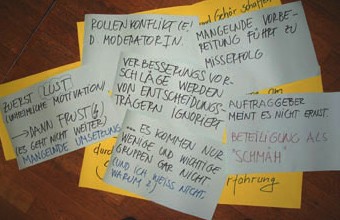 und Gehör schaffen
ROLLENKONFLIKT (E)
D. MODERATOR.IN.
MANGELNDE VORBE-
REITUNG FÜHRT ZU
MISSERFOLG
VERBESSERUNGSVOR-
SCHLÄGE WERDEN
VON ENTSCHEIDUNGS-
TRÄGERN IGNORIERT
ZUERST LUST
MOTIVATION)
→ DANN FRUST
(ES GEHT NICHT WEITER)
MANGELNDE UMSETZUNG
AUFTRAGGEBER
MEINT ES NICHT ERNST.
BETEILIGUNG ALS
"SCHMÄH"
... ES KOMMEN NUR
WENIGE UND WICHTIGE
GRUPPEN GAR NICHT
(UND ICH WEISS NICHT,
WARUM?)
durch